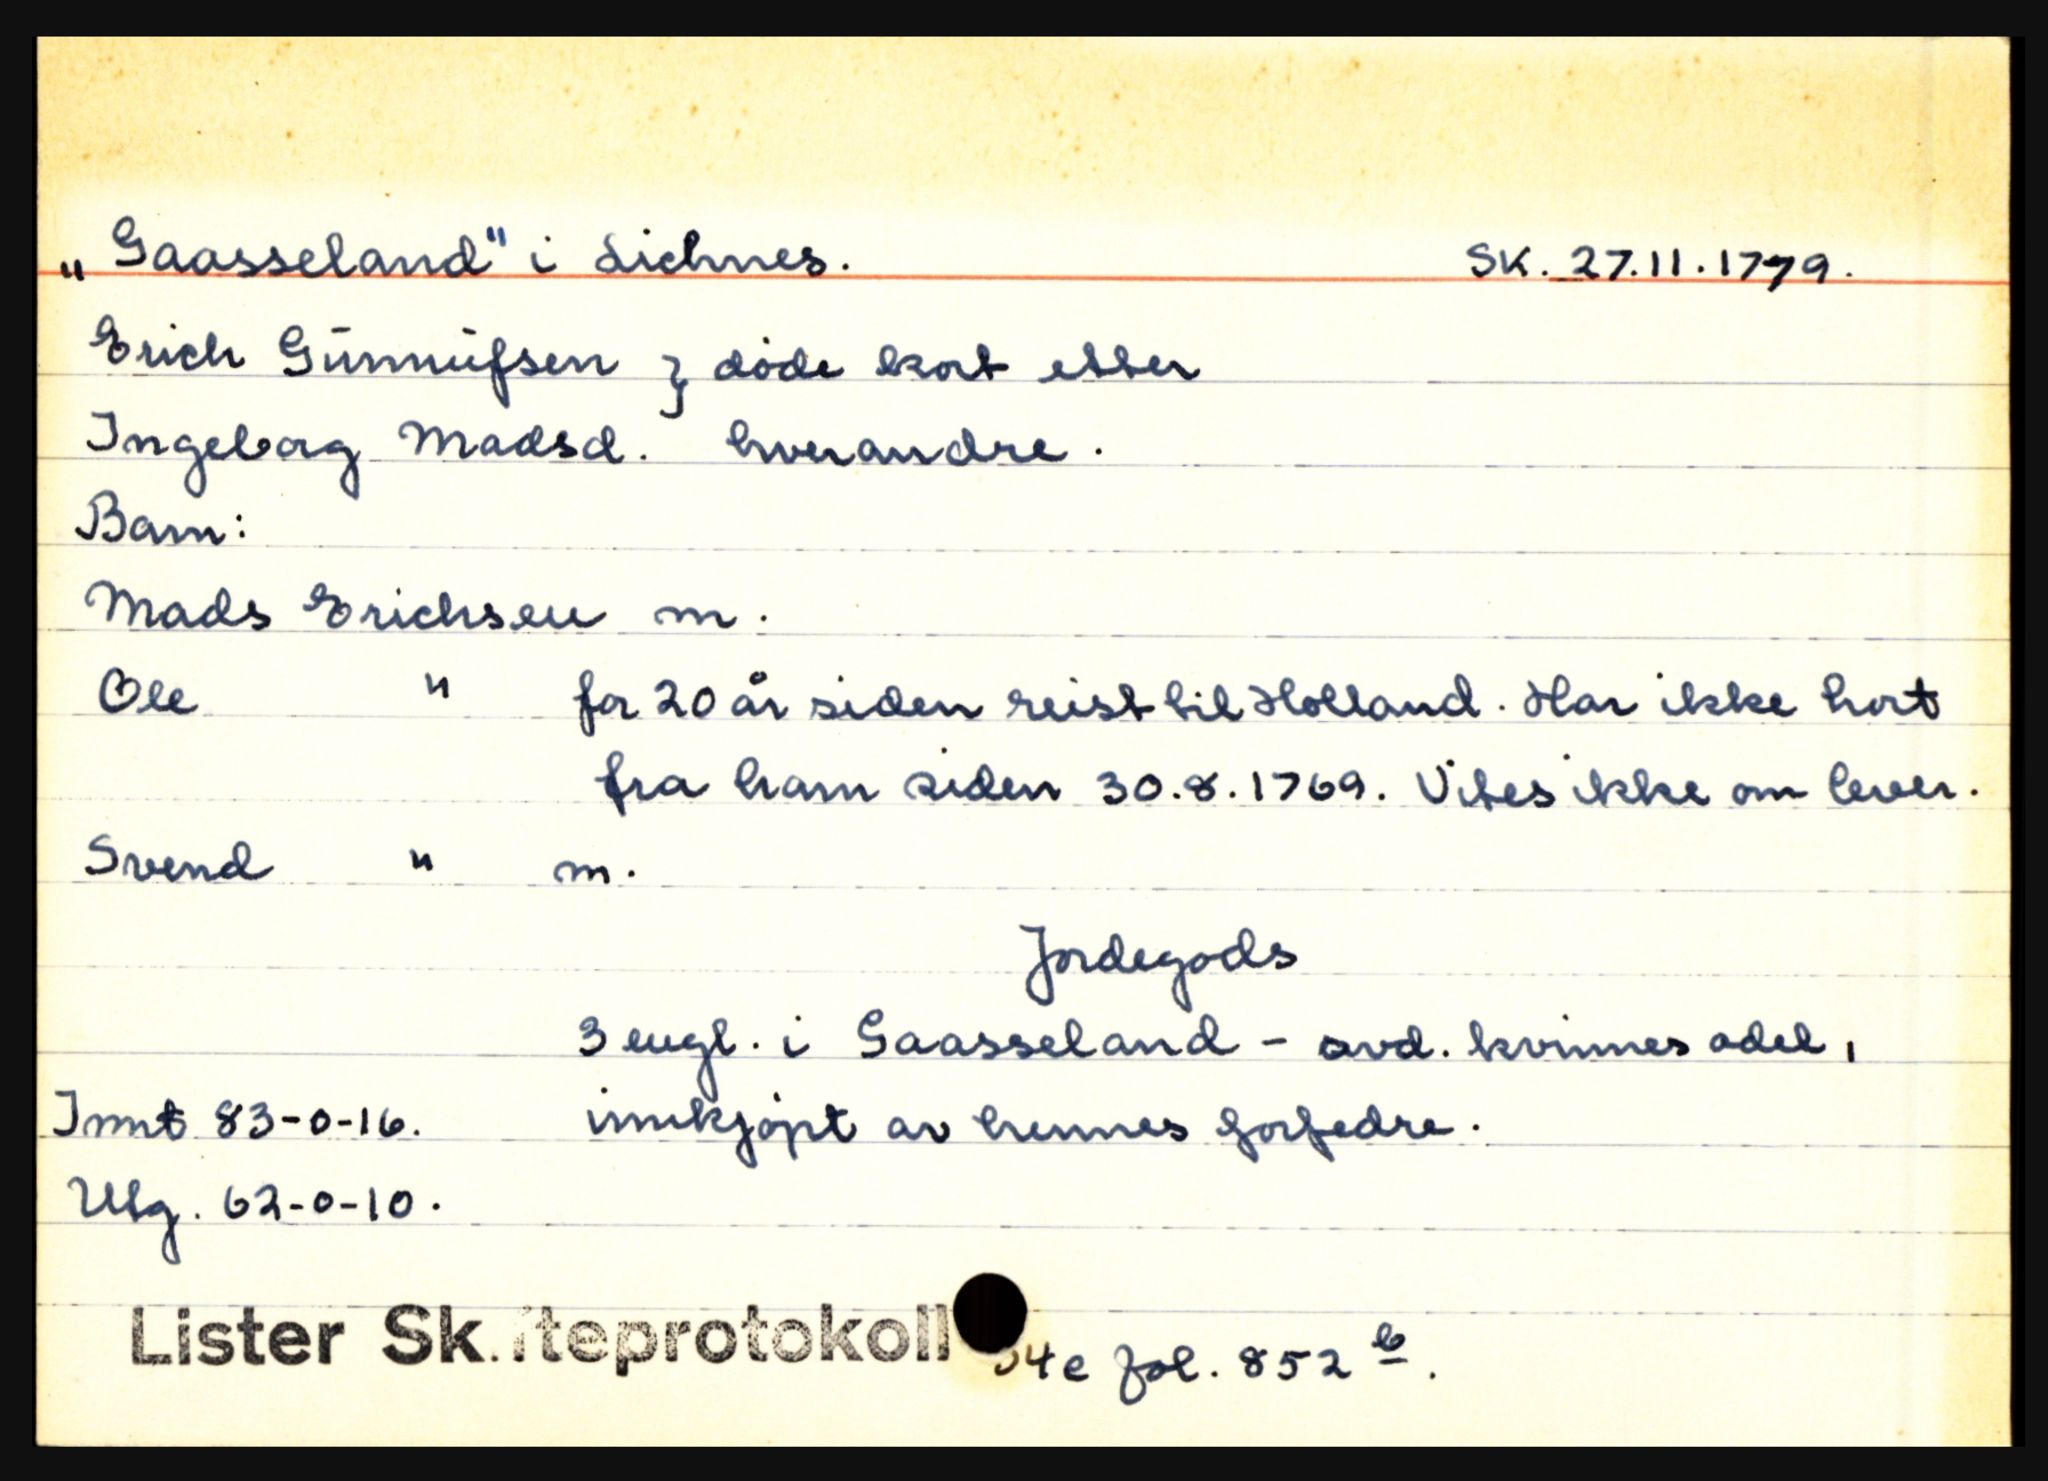 „Gaasseland" i Lichnes. SK. 27.11.1779.
Erich Gūnnūfsen } døde kort etter
Ingeborg Madsd. hverandre.
Barn:
Mads Erichsen m.
Ole " for 20 år siden reist til Holland. Har ikke hørt
fra ham siden 30.8.1769. Vites ikke om lever.
Svend " m.
Jordegods
3 engl. i Gaasseland - avd. kvinnes odel,
Innt 83-0-16. innkjøpt av hennes forfedre.
Utg. 62-0-10.
Lister Skifteprotokoll 4e fol. 852 b.